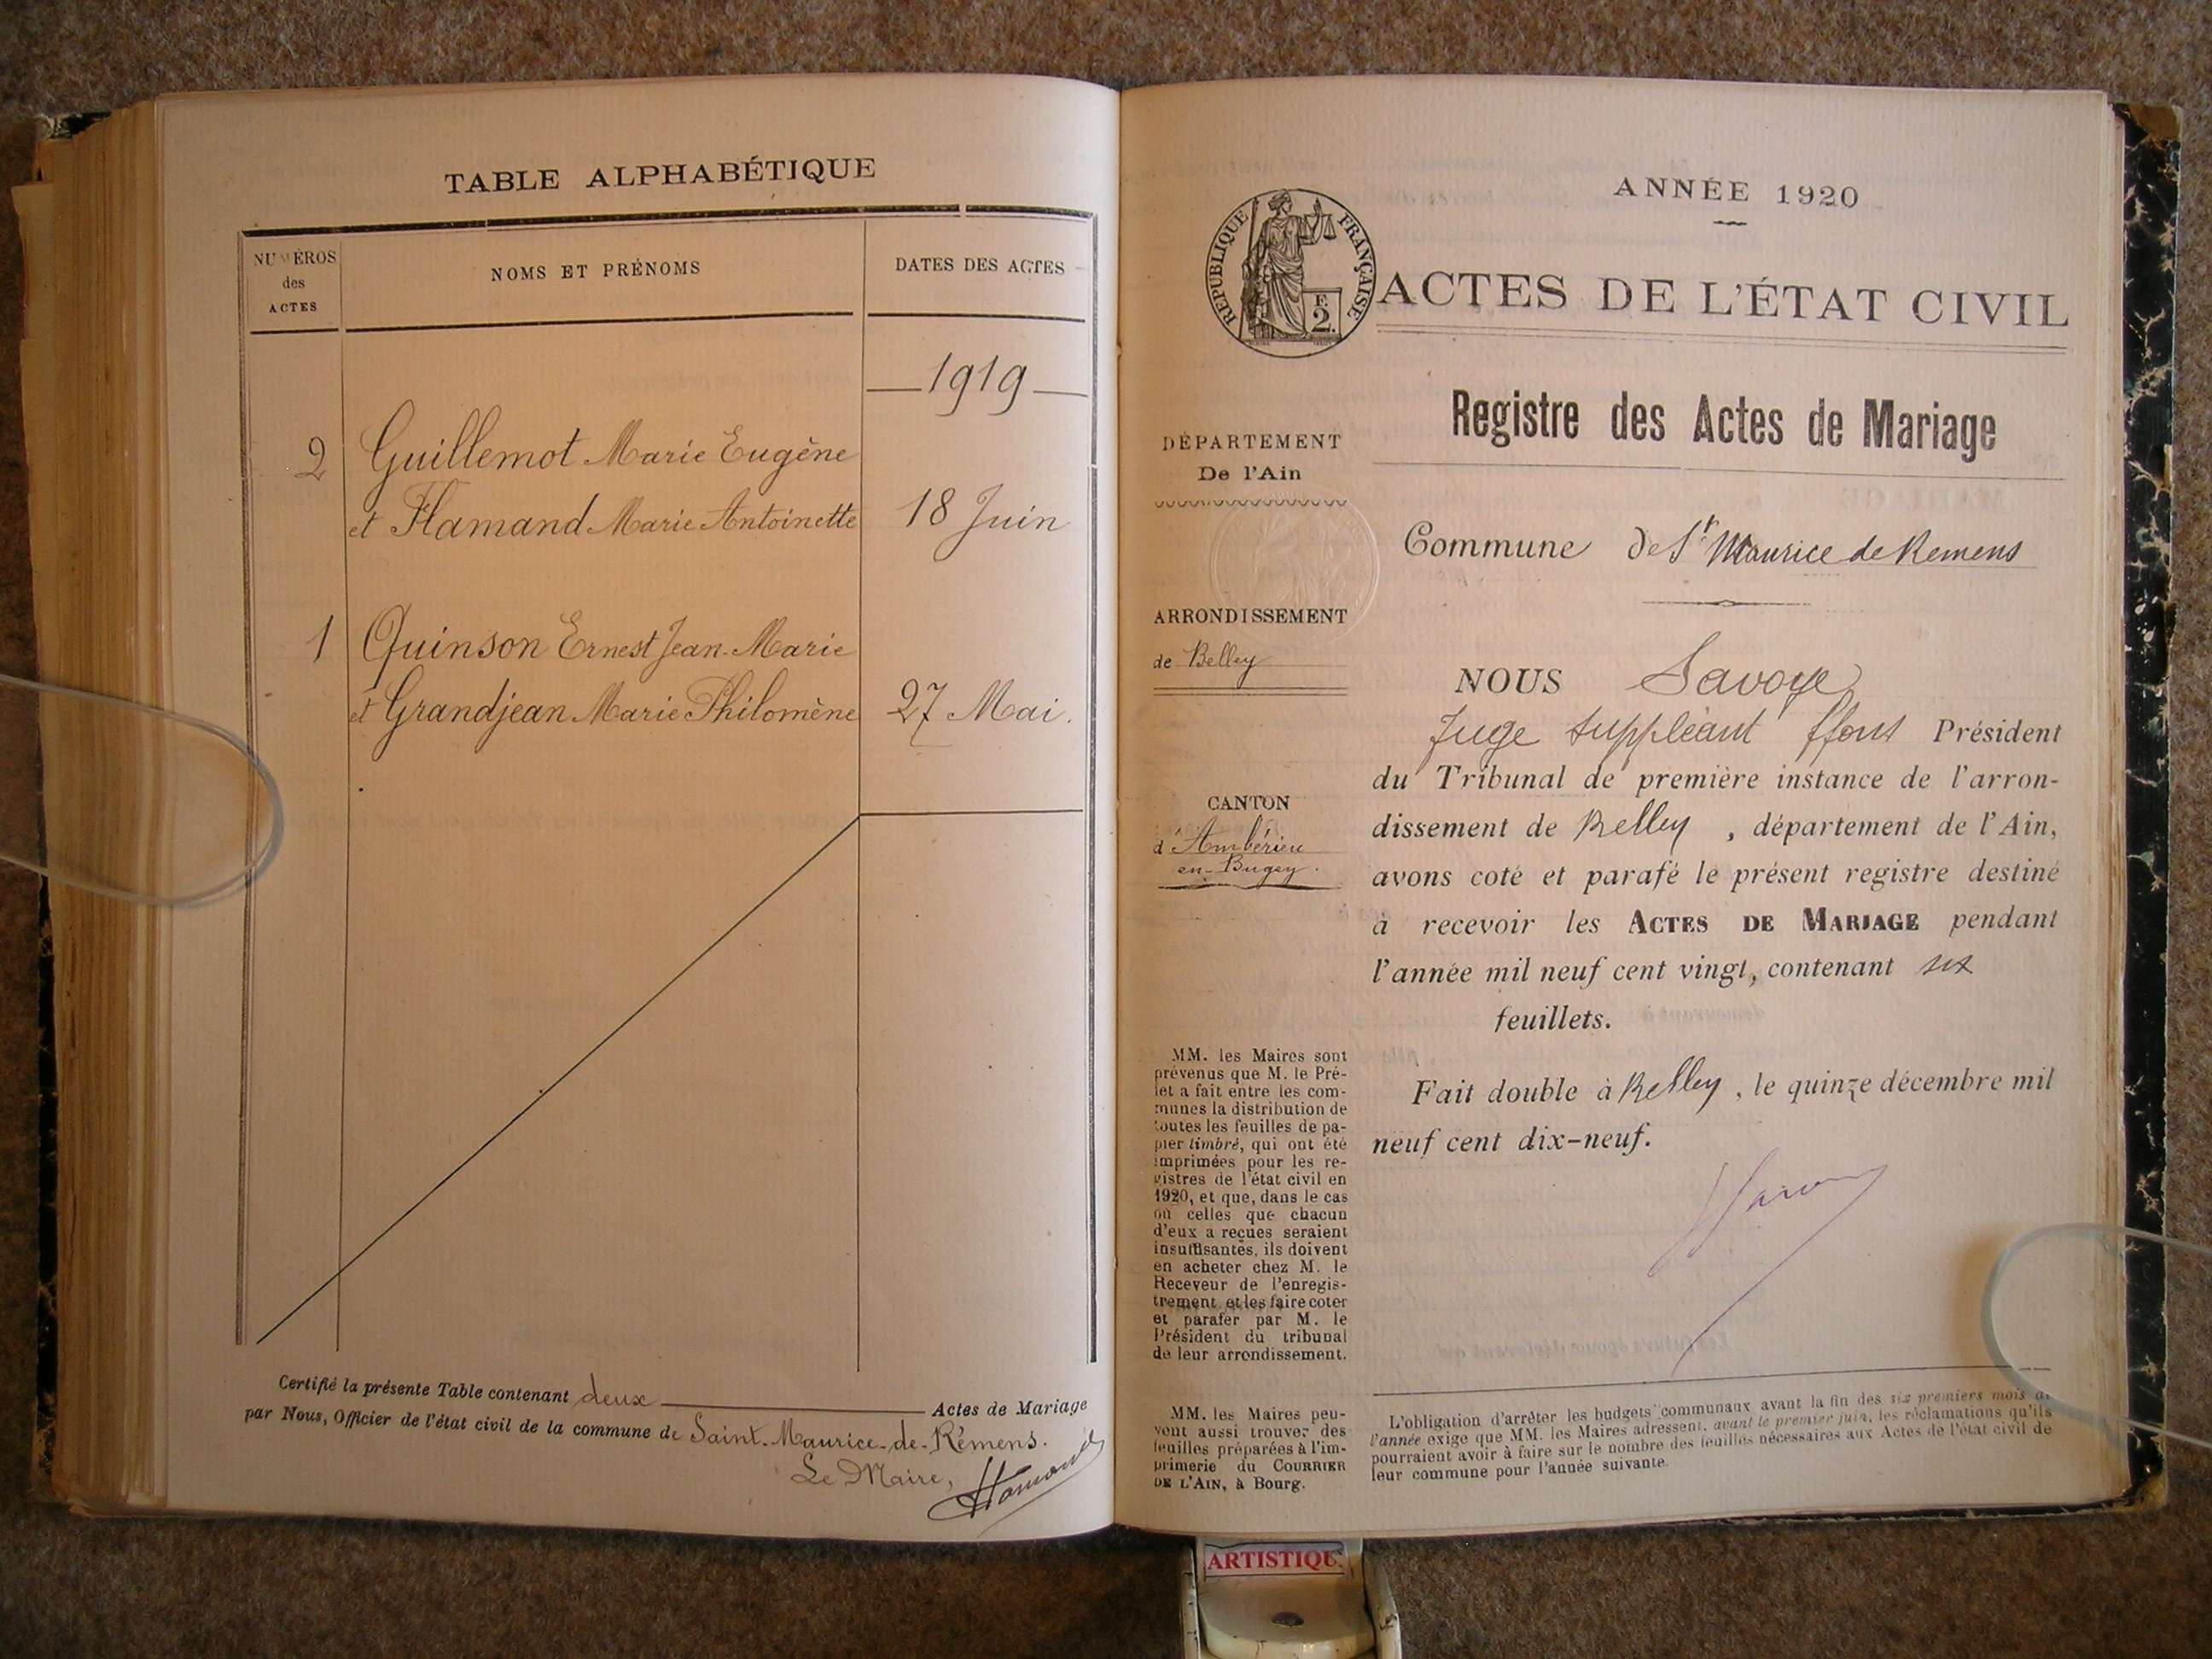 TABLE ALPHABÉTIQUE
NUMÉROS
des
ACTES
NOMS ET PRÉNOMS
DATES DES ACTES
1919
2 Guillemot Marie Eugène
et Flamand Marie Antoinette 18 Juin
1 Quinson Ernest Jean-Marie
et Grandjean Marie Philomène 27 Mai.
Certifié la présente Table contenant deux Actes de Mariage
par Nous, Officier de l'état civil de la commune de Saint-Maurice-de-Rémens.
Le Maire,
ANNÉE 1920
RÉPUBLIQUE FRANÇAISE
F.
2.
ACTES DE L'ÉTAT CIVIL
Registre des Actes de Mariage
DÉPARTEMENT
De l'Ain
Commune de St Maurice de Remens
ARRONDISSEMENT
de Belley
CANTON
d'Ambérieu
en-Bugey.
NOUS Savoye
Juge suppléant ffons Président
du Tribunal de première instance de l'arron-
dissement de Belley , département de l'Ain,
avons coté et parafé le présent registre destiné
à recevoir les ACTES DE MARIAGE pendant
l'année mil neuf cent vingt, contenant six
feuillets.
Fait double à Belley , le quinze décembre mil
neuf cent dix-neuf.
MM. les Maires sont
prévenus que M. le Pré-
fet a fait entre les com-
munes la distribution de
toutes les feuilles de pa-
pier timbré, qui ont été
imprimées pour les re-
gistres de l'état civil en
1920, et que, dans le cas
où celles que chacun
d'eux a reçues seraient
insuffisantes, ils doivent
en acheter chez M. le
Receveur de l'enregis-
trement et les faire coter
et parafer par M. le
Président du tribunal
de leur arrondissement.
MM. les Maires peu-
vent aussi trouver des
feuilles préparées à l'im-
primerie du COURRIER
DE L'AIN, à Bourg.
L'obligation d'arrêter les budgets communaux avant la fin des six premiers mois de
l'année exige que MM. les Maires adressent, avant le premier juin, les réclamations qu'ils
pourraient avoir à faire sur le nombre des feuilles nécessaires aux Actes de l'état civil de
leur commune pour l'année suivante.
ARTISTIQU